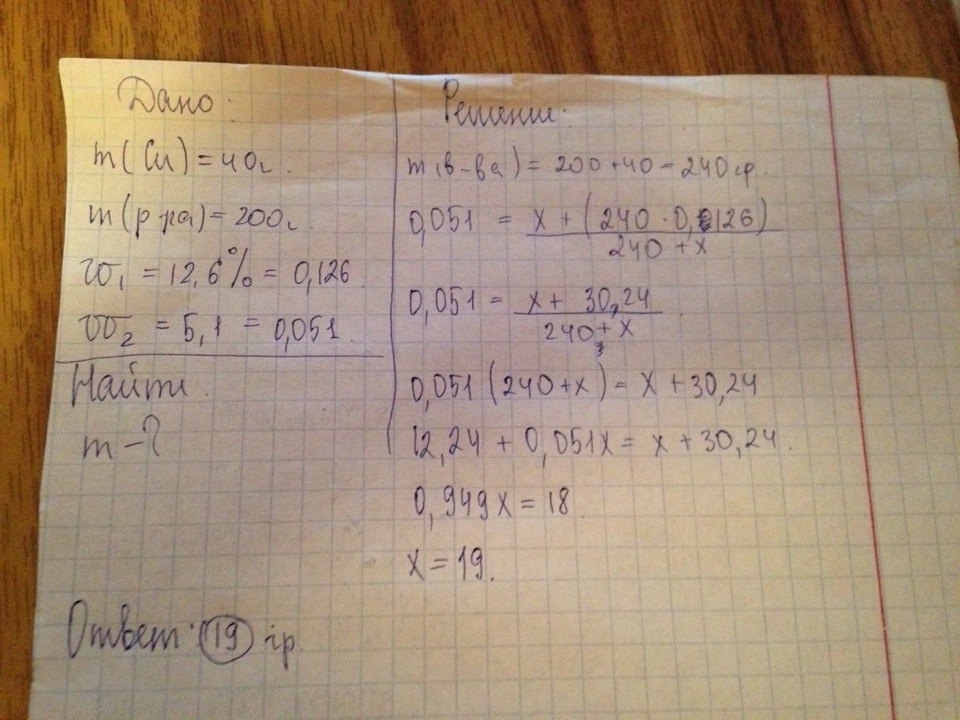 Дано:
m(Cu) = 40г.
m(р-ра) = 200г
ω₁ = 12,6% = 0,126.
ω₂ = 5,1 = 0,051.
Найти.
m - ?
Решение:
m(в-ва) = 200 + 40 = 240 гр.
0,051 = x + (240 · 0,126)
240 + x
0,051 = x + 30,24
240 + x
0,051 (240 + x) = x + 30,24
12,24 + 0,051x = x + 30,24.
0,949x = 18.
x = 19.
Ответ: 19 гр.